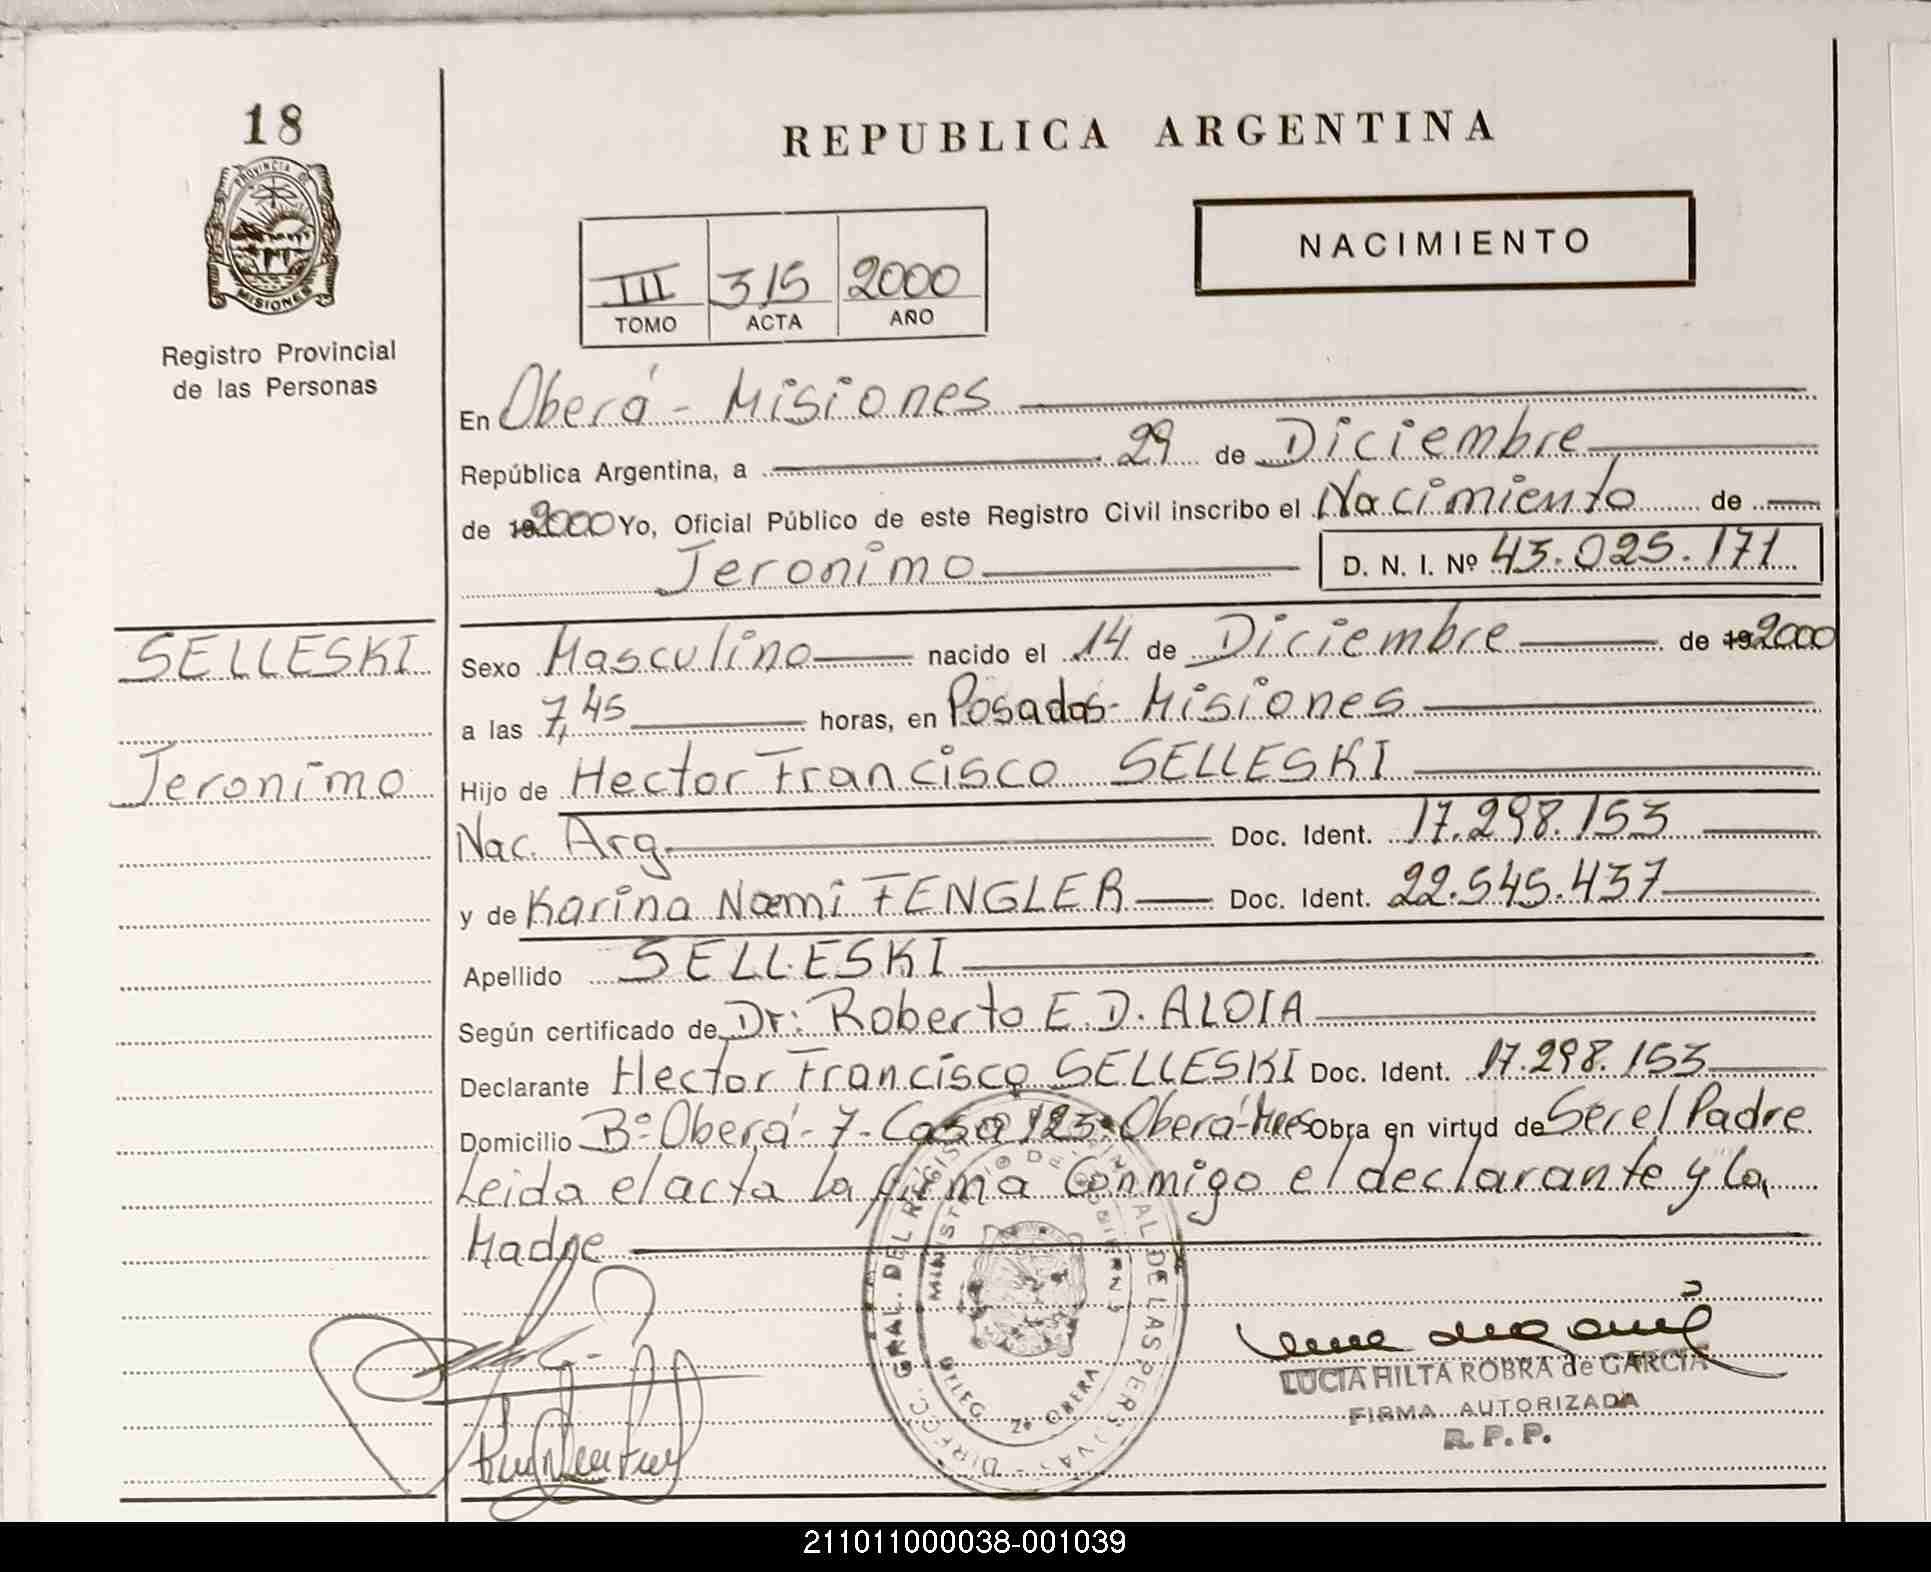 18
PROVINCIA DE
MISIONES
Registro Provincial
de las Personas
REPUBLICA ARGENTINA
NACIMIENTO
III 315 2000
TOMO ACTA AÑO
En Oberá - Misiones
República Argentina, a 29 de Diciembre
de 192000 Yo, Oficial Público de este Registro Civil inscribo el Nacimiento de
Jeronimo D. N. I. Nº 43.025.171
SELLESKI
Jeronimo
Sexo Masculino nacido el 14 de Diciembre de 192000
a las 7,45 horas, en Posadas - Misiones
Hijo de Hector Francisco SELLESKI
Nac. Arg. Doc. Ident. 17.298.153
y de Karina Noemi FENGLER Doc. Ident. 22.545.437
Apellido SELLESKI
Según certificado de Dr: Roberto E. D. ALOIA
Declarante Hector Francisco SELLESKI Doc. Ident. 17.298.153
Domicilio Bº Oberá - 7 - Casa 123 - Oberá - Mnes Obra en virtud de Ser el Padre
Leida el acta la firma Conmigo el declarante y la
Madre
DIRECC. GRAL. DEL REGIS
AL DE LAS PERS
MINISTERIO DE GOBIERNO
DELEG Nº OBERA
LUCIA HILTA ROBRA de GARCIA
FIRMA AUTORIZADA
R. P. P.
211011000038-001039